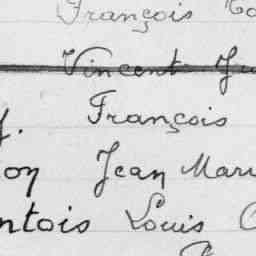 François
Vincent
François
Jean Mari
ntois Louis